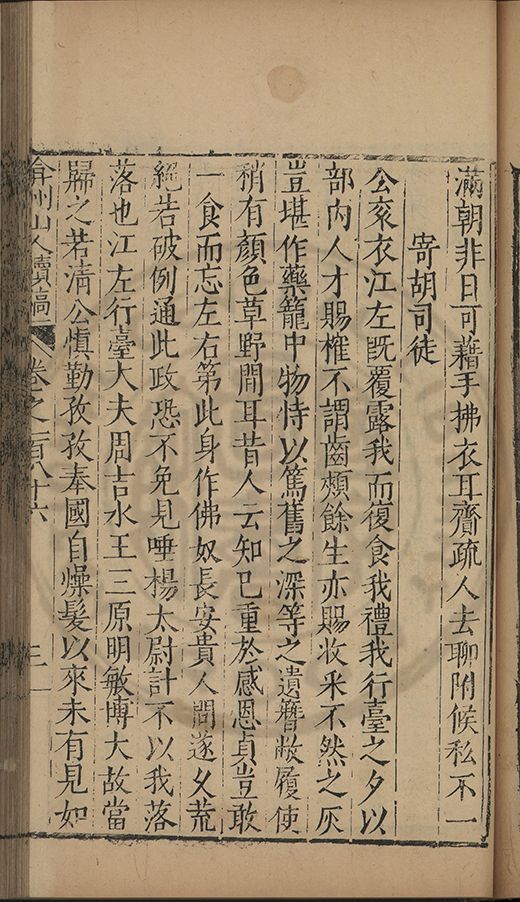 滿朝非日可藉手拂衣耳齎疏人去聊附候私不一
寄胡司徒
公衮衣江左既覆露我而復食我禮我行臺之夕以
部内人才賜榷不謂齒頰餘生亦賜收采不然之灰
豈堪作藥籠中物恃以篤舊之深等之遺簪敝履使
稍有顔色草野間耳昔人云知己重於感恩貞豈敢
一食而忘左右第此身作佛奴長安貴人問遂乆荒
絕若破例通此政恐不免見唾楊太尉計不以我落
落也江左行臺大夫周吉水王三原明敏博大故當
歸之若清公慎勤孜孜奉國自燥髮以來未有見如
弇州山人續稿 卷之一百八十六 三